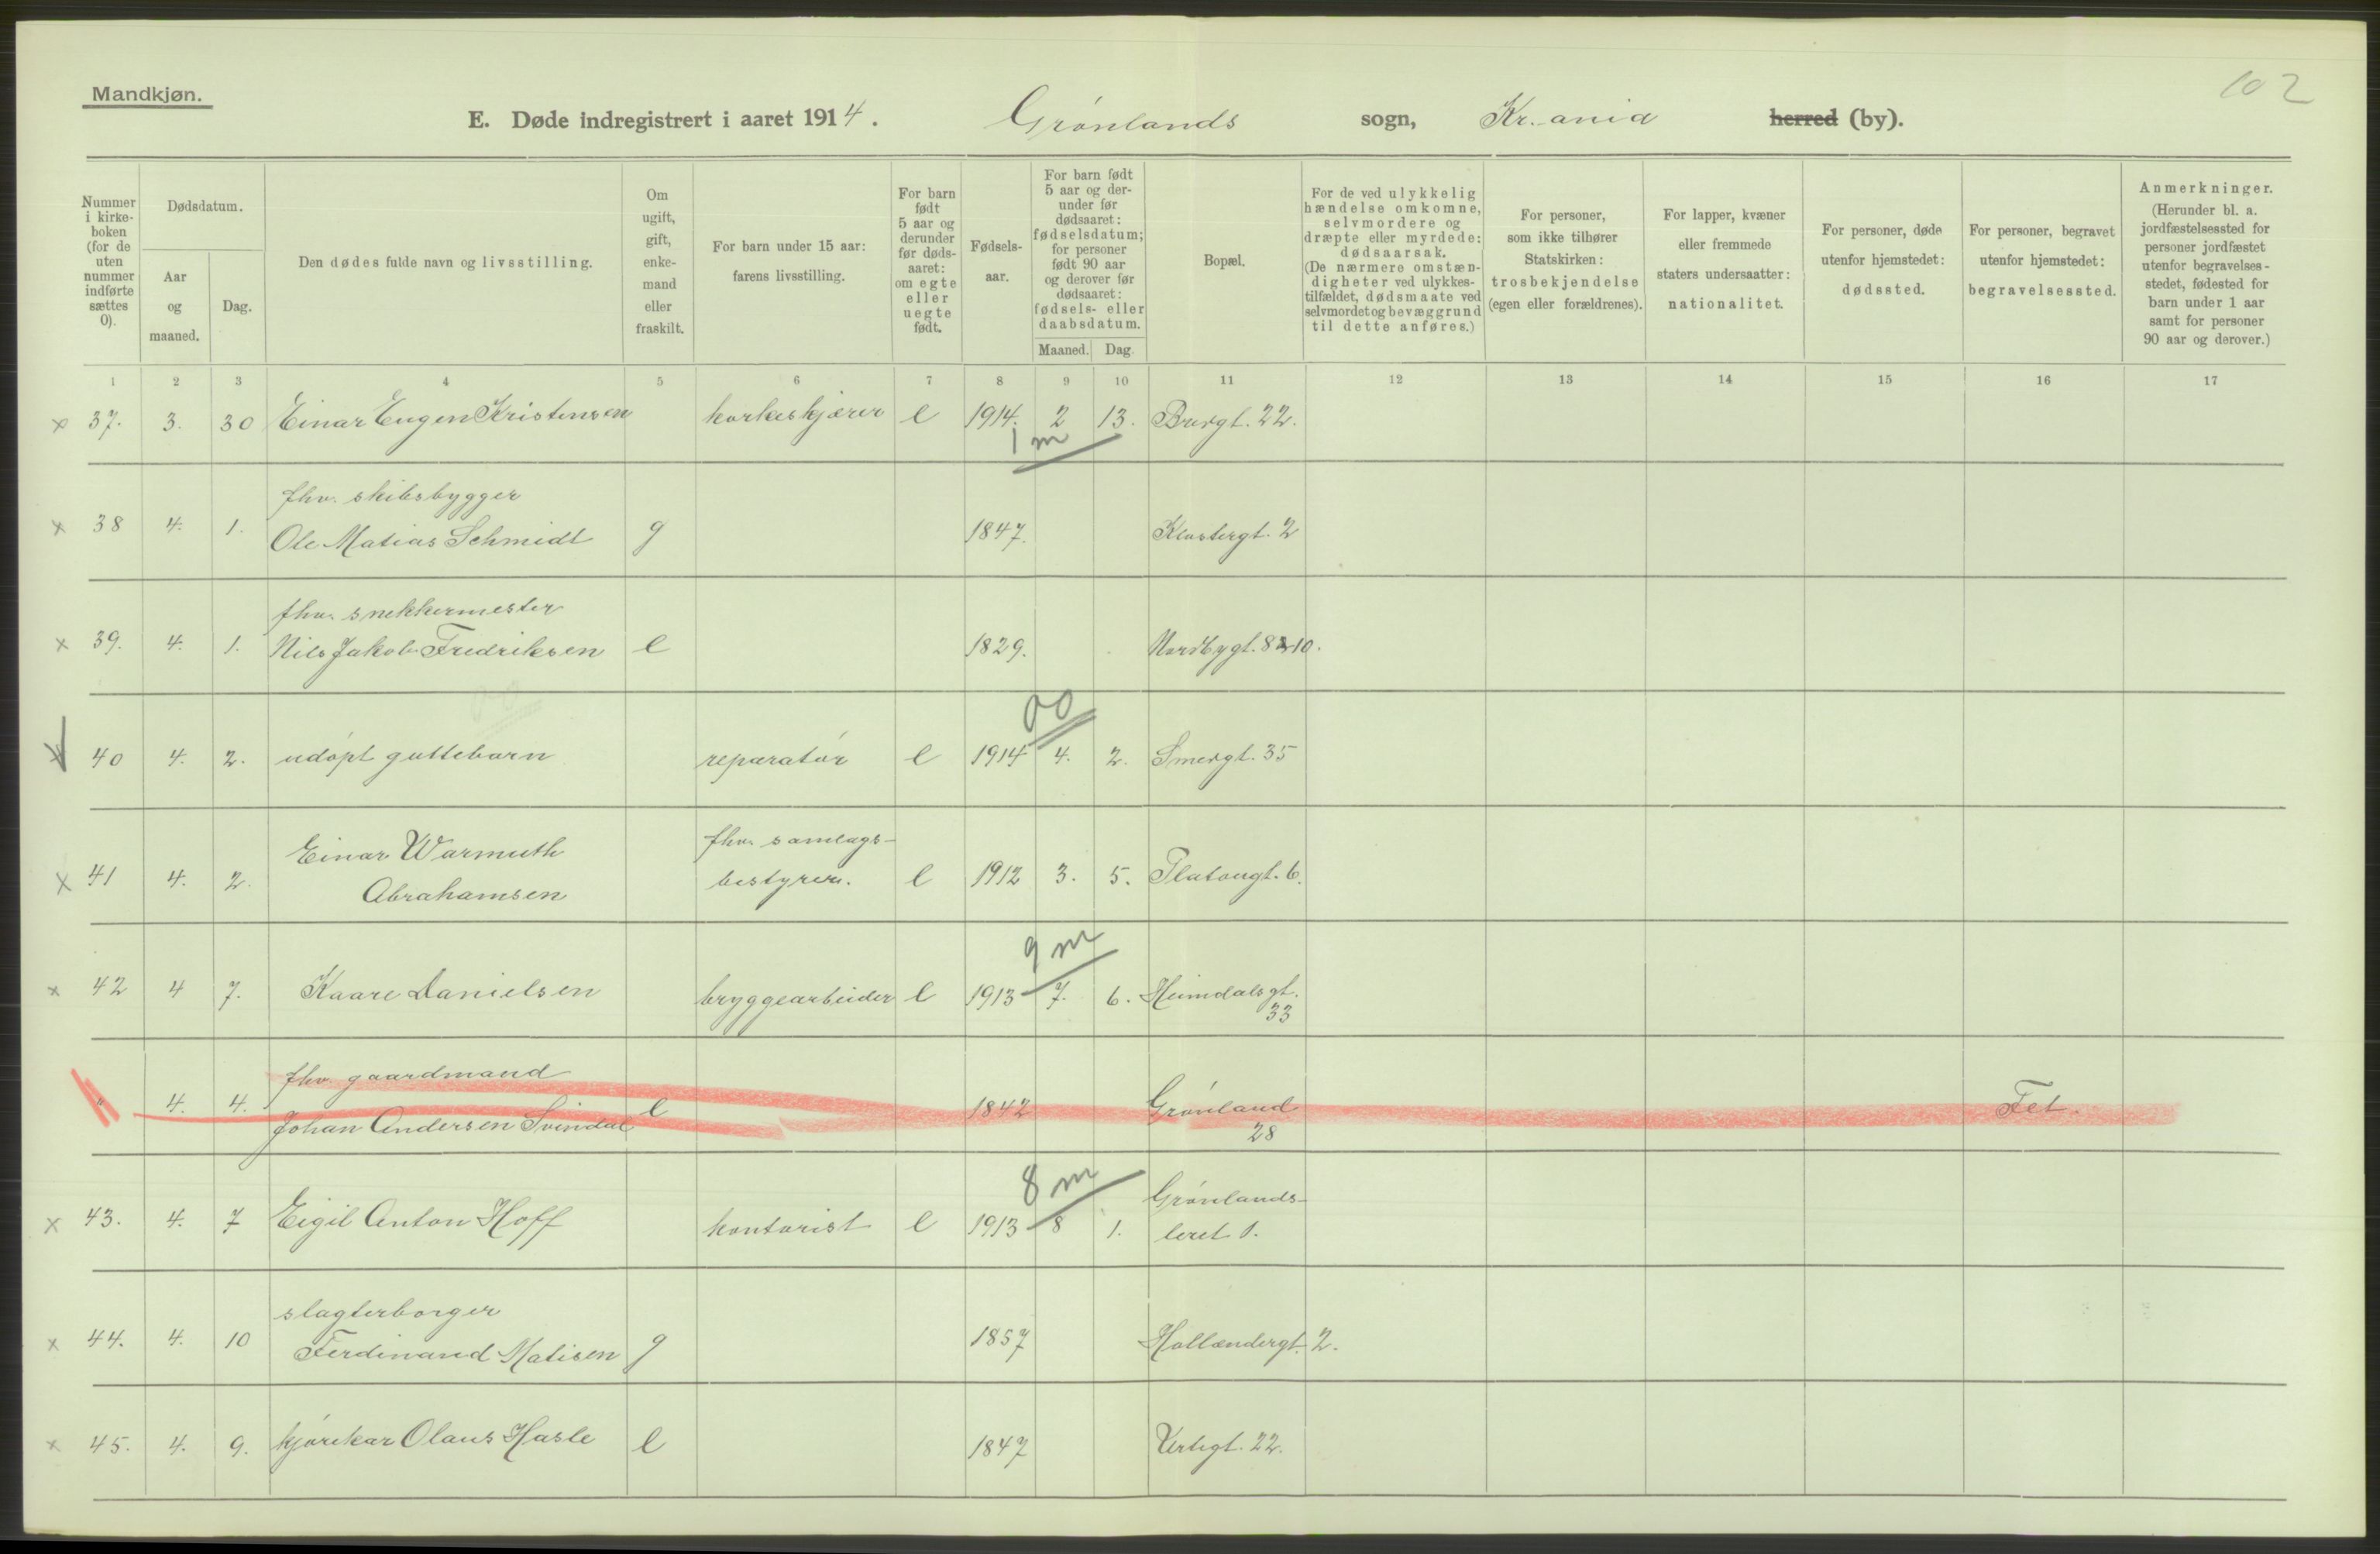 Mandkjøn.
102
E. Døde indregistrert i aaret 1914. Grønlands sogn, Kr.ania herred (by).
Nummer i kirkeboken (for de uten nummer indførte sættes 0).
Dødsdatum.
Aar og maaned.
Dag.
Den dødes fulde navn og livsstilling.
Om ugift, gift, enkemand eller fraskilt.
For barn under 15 aar: farens livsstilling.
For barn født 5 aar og derunder før dødsaaret: om egte eller uegte født.
Fødselsaar.
For barn født 5 aar og derunder før dødsaaret: fødselsdatum; for personer født 90 aar og derover før dødsaaret: fødsels- eller daabsdatum.
Maaned. Dag.
Bopæl.
For de ved ulykkelig hændelse omkomne, selvmordere og dræpte eller myrdede: dødsaarsak. (De nærmere omstændigheter ved ulykkestilfældet, dødsmaate ved selvmordet og bevæggrund til dette anføres.)
For personer, som ikke tilhører Statskirken: trosbekjendelse (egen eller forældrenes).
For lapper, kvæner eller fremmede staters undersaatter: nationalitet.
For personer, døde utenfor hjemstedet: dødssted.
For personer, begravet utenfor hjemstedet: begravelsessted.
Anmerkninger. (Herunder bl. a. jordfæstelsessted for personer jordfæstet utenfor begravelsesstedet, fødested for barn under 1 aar samt for personer 90 aar og derover.)
1 2 3 4 5 6 7 8 9 10 11 12 13 14 15 16 17
x 37. 3. 30 Einar Eugen Kristensen korkeskjærer e 1914. 2 13. Burgt. 22.
1 m
fhv. skibsbygger
x 38 4. 1. Ole Matias Schmidt g 1847. Klostergt. 2
fhv. snekkermester
x 39. 4. 1. Nils Jakob Fredriksen e 1829. Nordbygt. 8-10.
00
40 4. 2. udøpt guttebarn reparatør e 1914 4. 2. Smergt. 35
Einar Warmuth fhv. samlags-
x 41 4. 2. Abrahamsen bestyrer. e 1912 3. 5. Platougt. 6.
9 m
x 42 4 7. Kaare Danielsen bryggearbeider e 1913 7. 6. Heimdalsgt.
33
fhv. gaardmand
" 4. 4. Johan Andersen Svindal e 1842 Grønland Fet.
28
8 m
Grønlands-
x 43. 4. 7 Eigil Anton Hoff kontorist e 1913 8 1. leret 1.
slagterborger
x 44. 4. 10 Ferdinand Matisen g 1857 Hollændergt. 2.
x 45. 4. 9. kjørekar Olaus Hasle e 1847 Urtegt. 22.